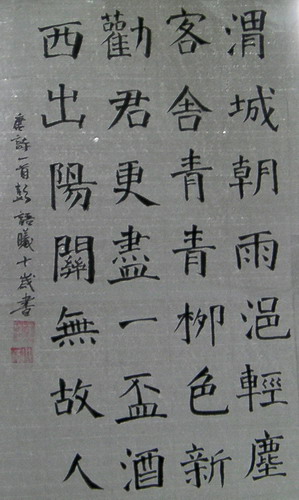 渭城朝雨浥輕塵
客舍青青柳色新
勸君更盡一盃酒
西出陽關無故人
唐詩一首彭語曦十歲書